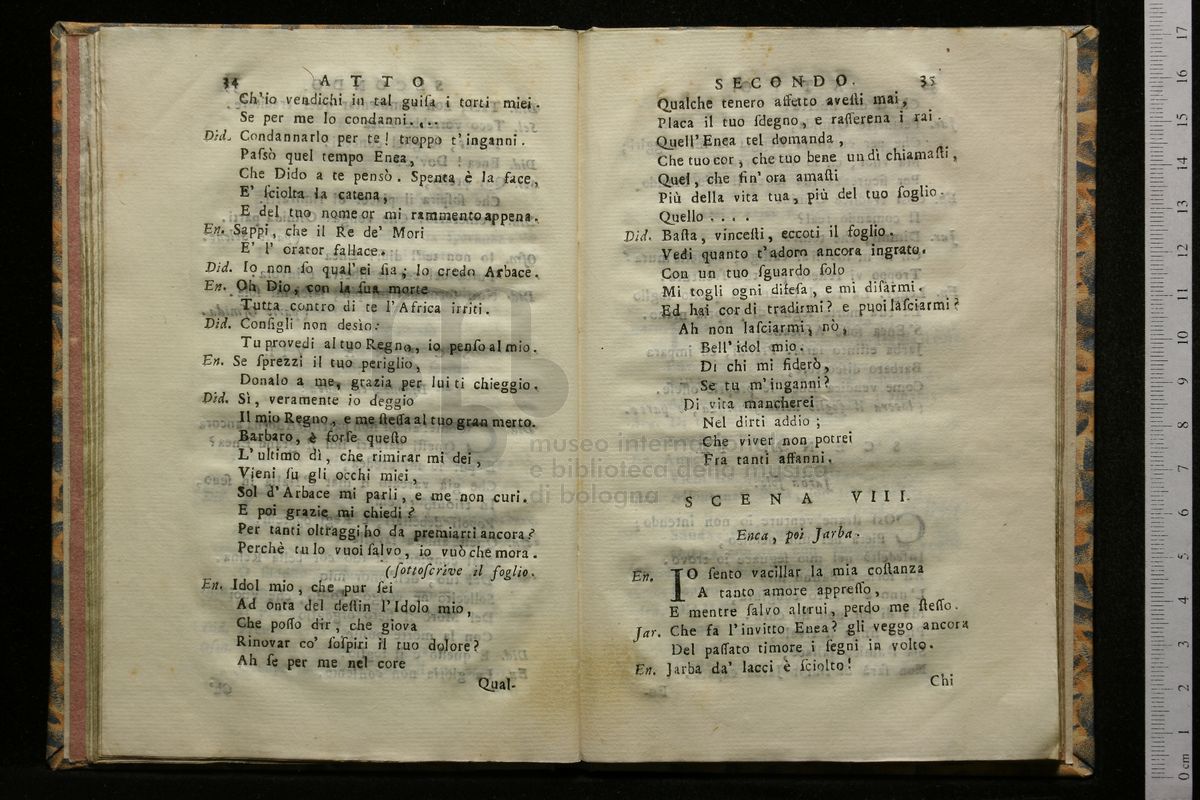 34 ATTO
Ch'io vendichi in tal guiſa i torti miei.
Se per me lo condanni....
Did. Condannarlo per te! troppo t'inganni.
Paſsò quel tempo Enea,
Che Dido a te pensò. Spenta è la face,
E' ſciolta la catena,
E del tuo nome or mi rammento appena.
En. Sappi, che il Re de' Mori
E' l' orator fallace.
Did. Io non ſo qual' ei ſia; lo credo Arbace.
En. Oh Dio, con la ſua morte
Tutta contro di te l'Africa irriti.
Did. Conſigli non desìo:
Tu provedi al tuo Regno, io penſo al mio.
En. Se ſprezzi il tuo periglio,
Donalo a me, grazia per lui ti chieggio.
Did. Sì, veramente io deggio
Il mio Regno, e me ſteſſa al tuo gran merto.
Barbaro, è forſe queſto
L'ultimo dì, che rimirar mi dei,
Vieni ſu gli occhi miei,
Sol d'Arbace mi parli, e me non curi.
E poi grazie mi chiedi?
Per tanti oltraggi ho da premiarti ancora?
Perchè tu lo vuoi ſalvo, io vuò che mora.
(ſottoſcrive il foglio.
En. Idol mio, che pur ſei
Ad onta del deſtin l'Idolo mio,
Che poſſo dir, che giova
Rinovar co' ſoſpiri il tuo dolore?
Ah ſe per me nel core
Qual-
SECONDO. 35
Qualche tenero affetto aveſti mai,
Placa il tuo ſdegno, e raſſerena i rai.
Quell'Enea tel domanda,
Che tuo cor, che tuo bene un dì chiamaſti,
Quel, che fin' ora amaſti
Più della vita tua, più del tuo ſoglio.
Quello....
Did. Baſta, vinceſti, eccoti il foglio.
Vedi quanto t'adoro ancora ingrato.
Con un tuo ſguardo ſolo
Mi togli ogni difeſa, e mi diſarmi.
Ed hai cor di tradirmi? e puoi laſciarmi?
Ah non laſciarmi, nò,
Bell'idol mio.
Di chi mi fiderò,
Se tu m'inganni?
Di vita mancherei
Nel dirti addio;
Che viver non potrei
Fra tanti affanni.
SCENA VIII.
Enea, poi Jarba.
En. IO ſento vacillar la mia coſtanza
A tanto amore appreſſo,
E mentre ſalvo altrui, perdo me ſteſſo.
Jar. Che fa l'invitto Enea? gli veggo ancora
Del paſſato timore i ſegni in volto.
En. Jarba da' lacci è ſciolto!
Chi
museo internazionale
e biblioteca della musica
di bologna
0 cm 1 2 3 4 5 6 7 8 9 10 11 12 13 14 15 16 17